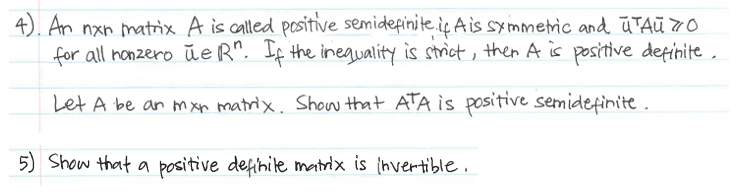 4). An nxn matrix A is called positive semidefinite if A is symmetric and ūᵀAū ≥ 0
for all nonzero ū ∈ Rⁿ. If the inequality is strict, then A is positive definite.
Let A be an mxn matrix. Show that AᵀA is positive semidefinite.
5) Show that a positive definite matrix is invertible.